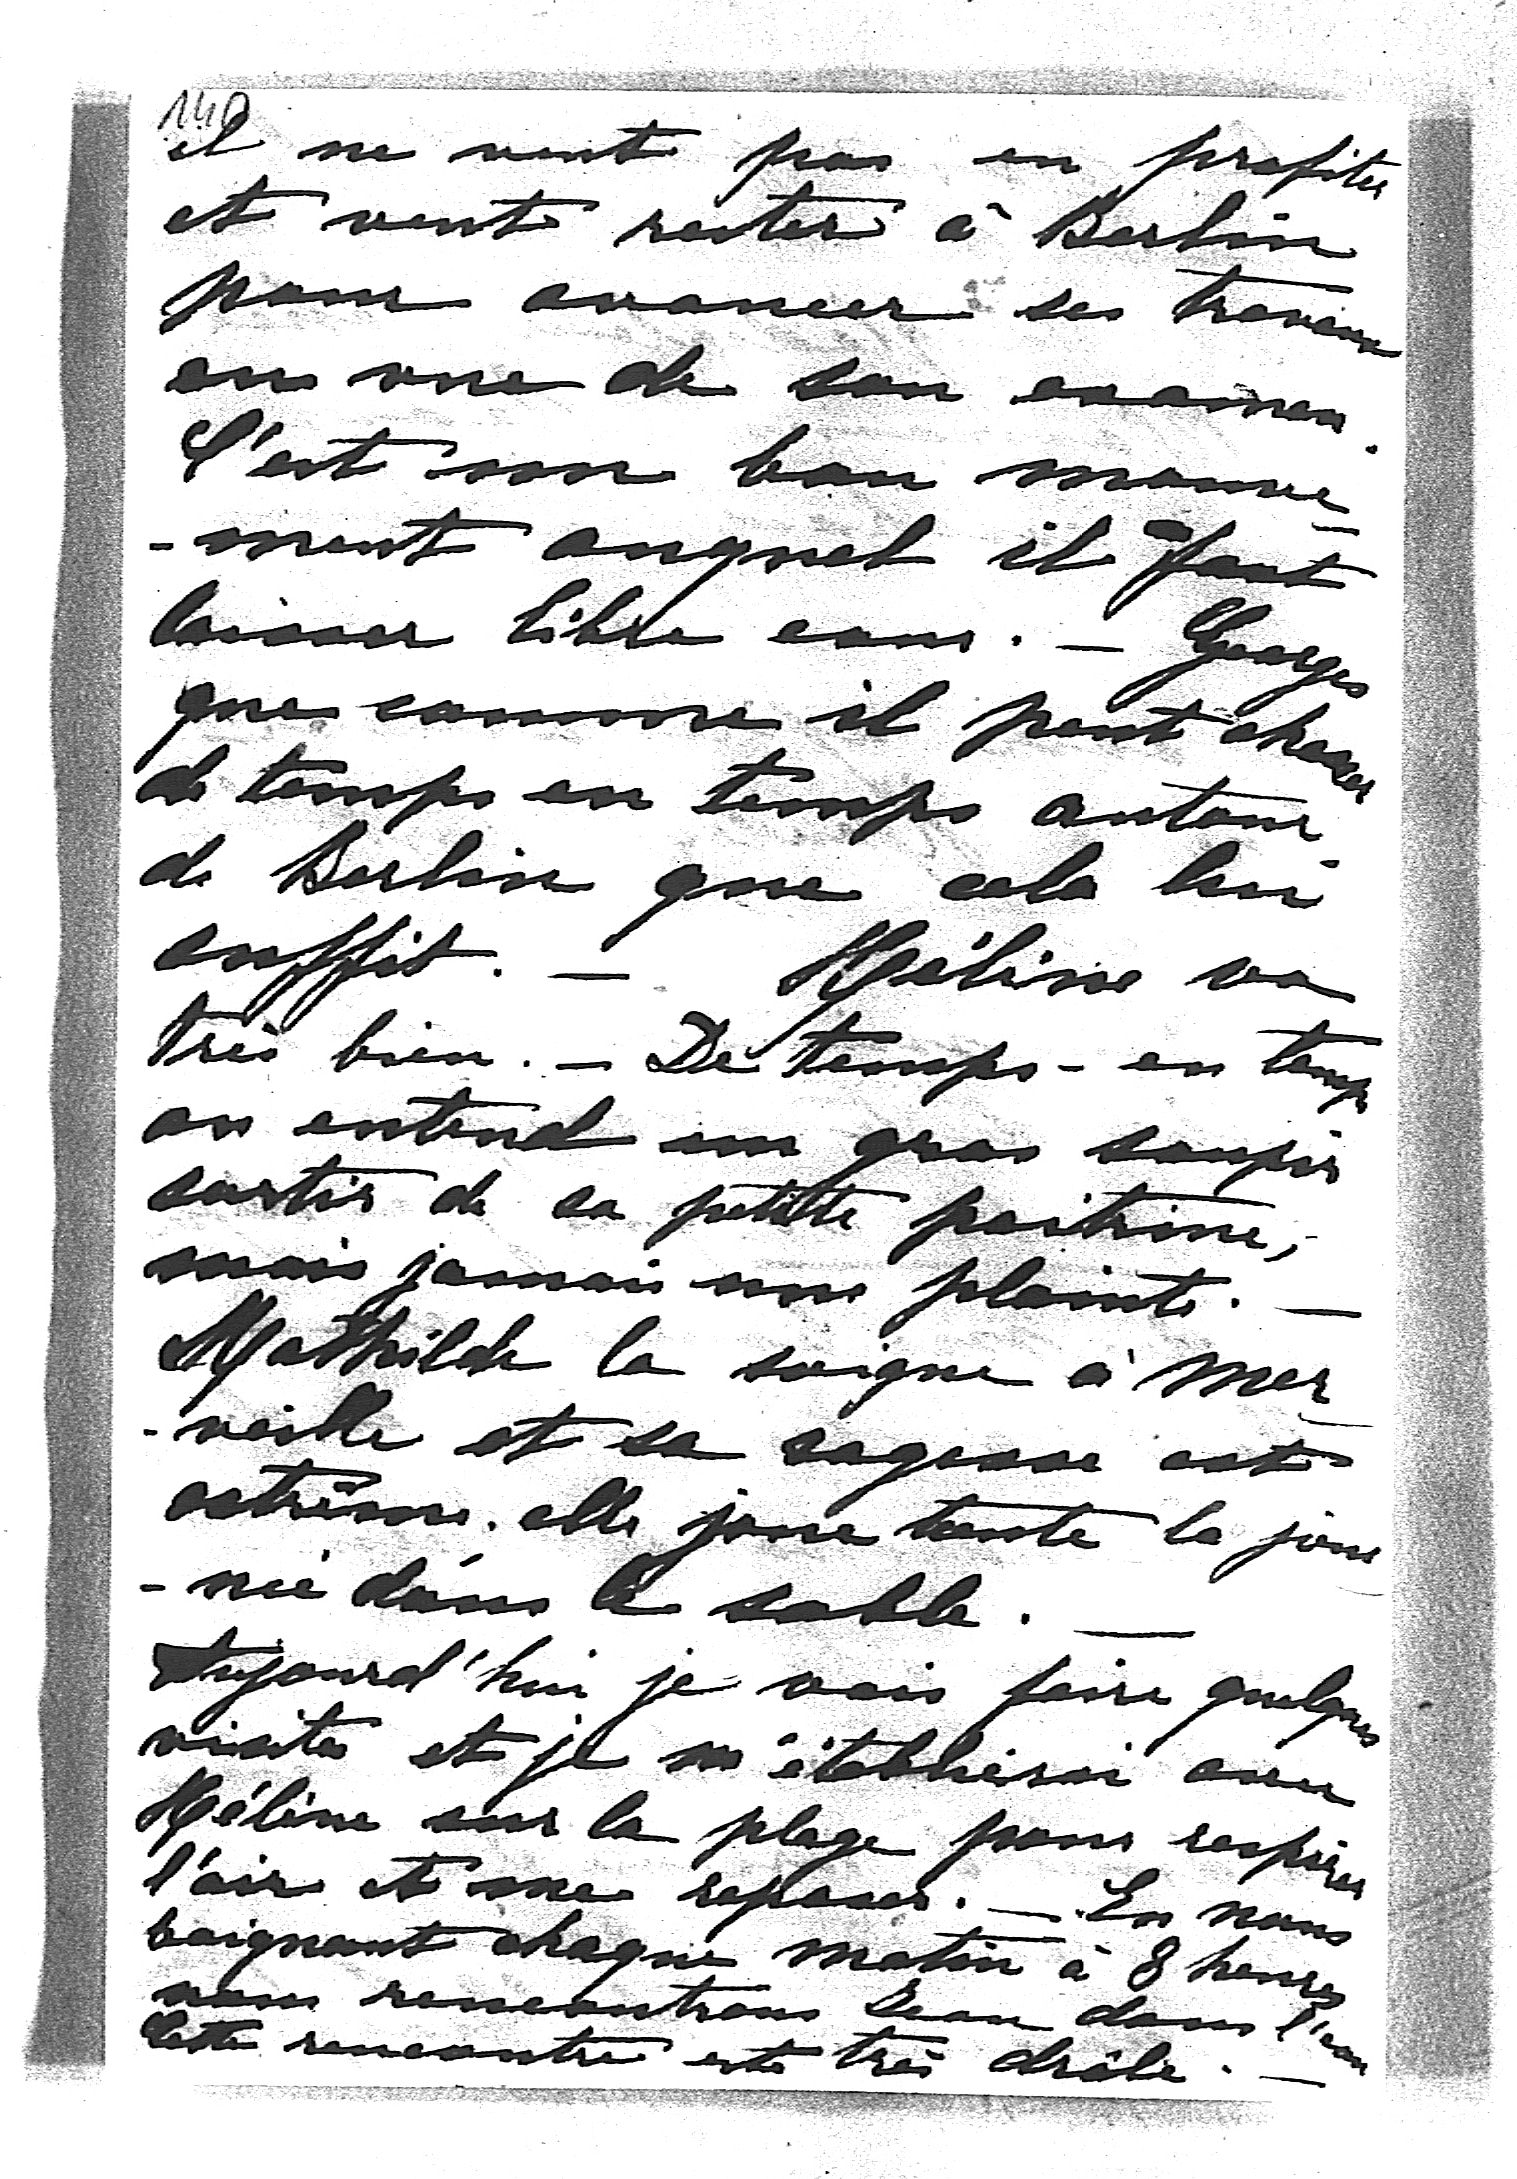 140
il ne veut pas en profiter
et veut rester à Berlin
pour avancer ses travaux
en vue de son examen.
C'est son bon mouve
-ment auquel il faut
laisser libre cours. — Georges
que comme il peut chasser
de temps en temps autour
de Berlin que cela lui
suffit. — Hélène va
très bien. — De temps-en temps
on entend un gros soupir
sortir de sa petite poitrine,
mais jamais une plainte. —
Mathilde la soigne à mer
-veille et sa sagesse est
extrême. elle joue toute la jour
-née dans le sable. —
Aujourd'hui je vais faire quelques
visites et je m'établierai avec
Hélène sur la plage pour respirer
l'air et me reposer. — En nous
baignant chaque matin à 8 heures
nous rencontrons Jean dans l'eau
Cette rencontre est très drôle. —